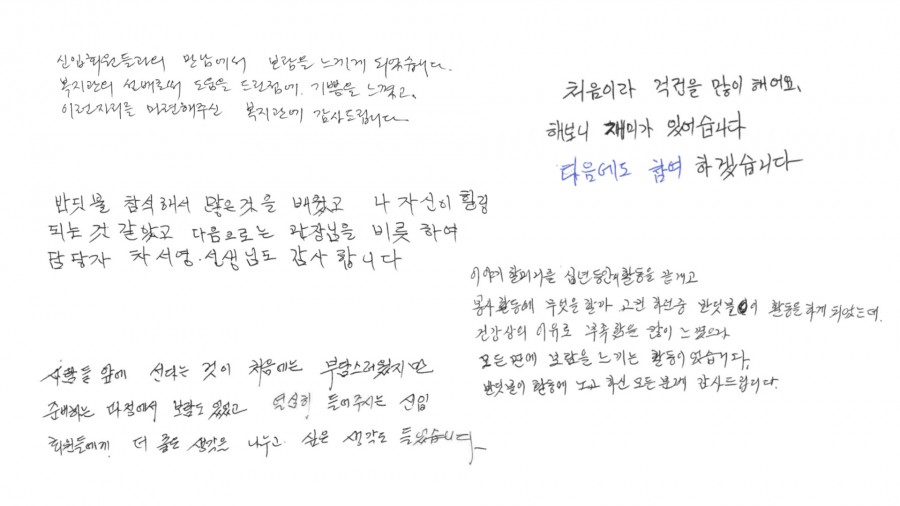 신입회원들과의 만남에서 보람을 느끼게 되었습니다.
복지관의 선배로써 도움을 드린점에. 기쁨을 느꼈고,
이런자리를 마련해주신 복지관에 감사드립니다.
처음이라 걱전을 많이 해어요,
해보니 재미가 있어습니다
다음에도 참여 하겠습니다
반딧불 참석해서 많은것을 배웠고 나 자신이 힐링
되는 것 같았고 다음으로는 관장님을 비롯 하여
담당자 차서영.선생님도 감사 합니다
이야기 할머니를 십년동안 활동을
봉사활동에 무엇을 할까 고민 하던중 반딧불이 활동을 하게 되었는데.
건강상의 이유로 부족함을 많이 느꼈으나
모든면에 보람을 느끼는 활동이었습니다.
반딧불이 활동에 노고 하신 모든분께 감사드립니다.
사람들 앞에 선다는 것이 처음에는 부담스러웠지만
준비하는 과정에서 보람도 있었고 열심히 들어주시는 신입
회원들에게 더 좋은 생각을 나누고 싶은 생각도 들었습니다